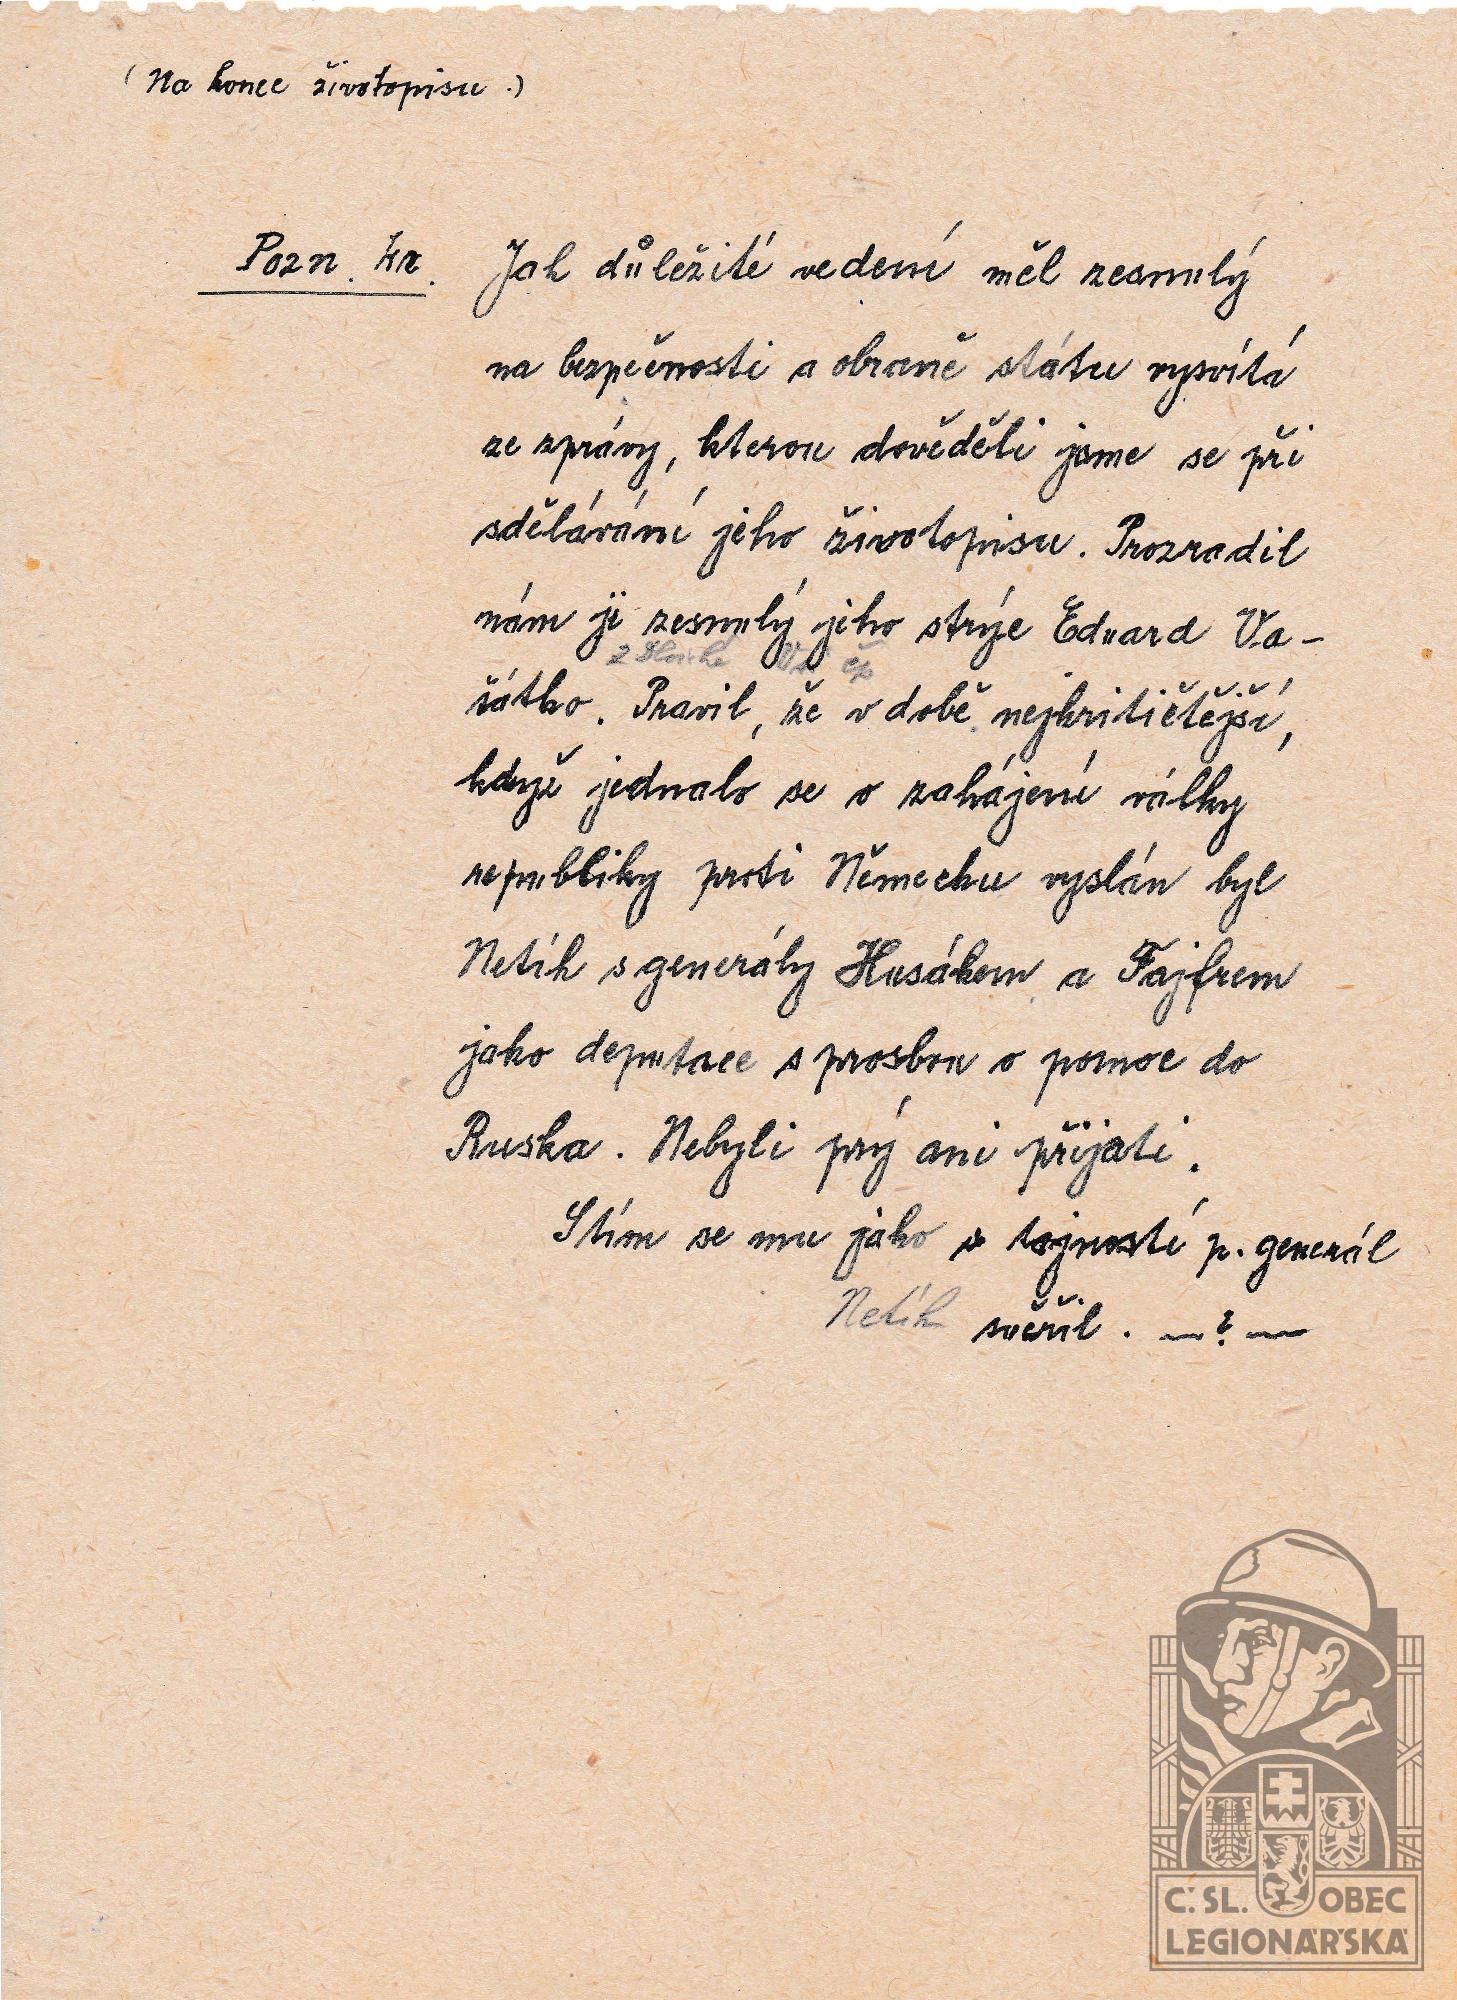 (Na konce životopisu.)
Pozn. kr. Jak důležité vedení měl zesnulý
na bezpečnosti a obraně státu vysvítá
ze zprávy, kterou dověděli jsme se při
sdělávání jeho životopisu. Prozradil
nám ji zesnulý jeho strýc Eduard Va-
šátko. Pravil, že v době nejkritičtější,
když jednalo se o zahájení války
republiky proti Německu vyslán byl
Netík s generály Husákem a Fajfrem
jako deputace s prosbou o pomoc do
Ruska. Nebyli prý ani přijati.
S tím se mu jako s tajností p. generál
Netík svěřil. —?—
Č.SL. OBEC
LEGIONÁŘSKÁ